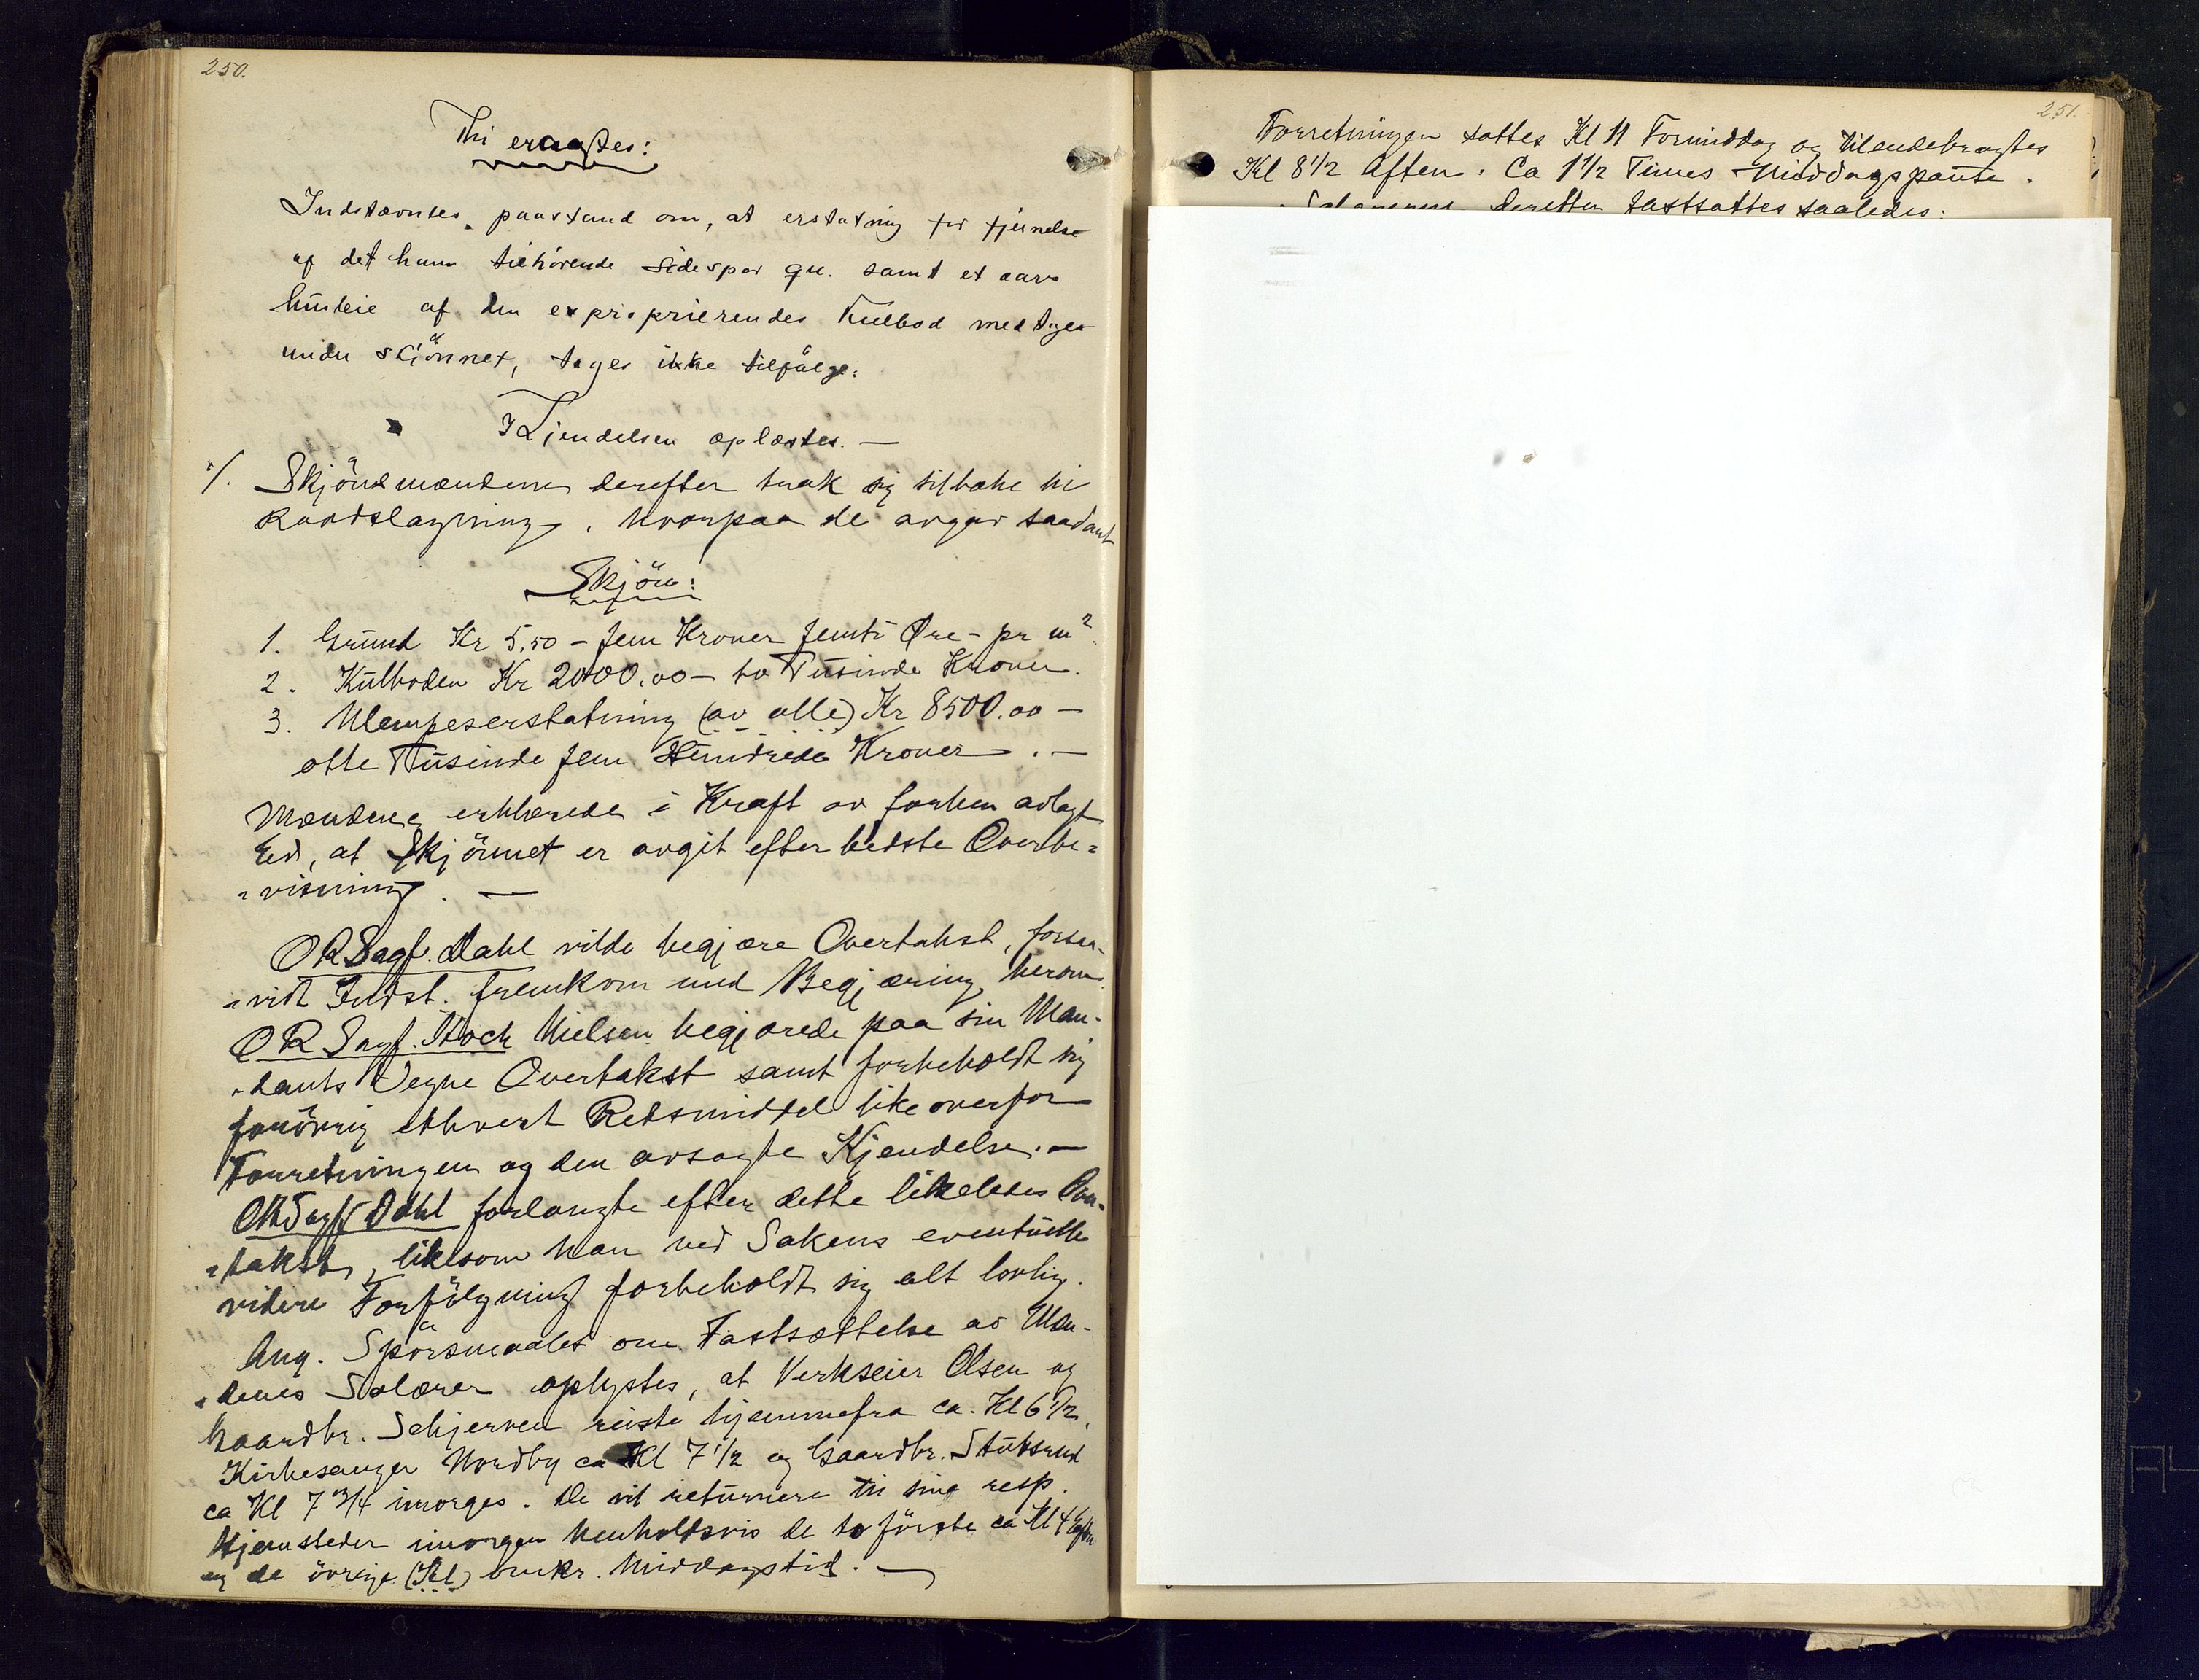 250.
Thi eragtes:
Indstævntes paastand om, at erstatning for fjernelse
af det ham tilhörende sidespor qu. samt et aars
husleie af den exproprierendes Kulbod medtages
under skjönnet, tages ikke tilfølge.
Kjendelsen oplæstes. —
·/. Skjönsmændene derefter trak sig tilbake til
Raadslagning, hvorpaa de avgav saadant
Skjön:
1. Grund Kr 5,50 - fem Kroner femti Øre - pr m².
2. Kulboden Kr 2000,00 - to Tusinde Kroner.
3. Ulempeserstatning (av alle) Kr 8500.00 —
otte Tusinde fem Hundrede Kroner. —
Mændene erklærede i Kraft av forhen avlagt
Ed, at Skjönnet er avgit efter bedste Overbe-
-visning. —
ORSagf. Dahl vilde begjære Overtakst, forsaa-
-vidt Indst. fremkom med Begjæring herom.
OR Sagf. Stoch Nielsen begjærede paa sin Man-
-dants Vegne Overtakst samt forbeholdt sig
forövrig ethvert Retsmiddel likeoverfor
Forretningen og den avsagte Kjendelse. —
ORSagf Dahl forlangte efter dette likeledes Over-
-takst, likesom han ved Sakens eventuelle
videre Forfölgning forbeholdt sig alt lovlig.
Ang. Spörsmaalet om Fastsættelse av Mæn-
-denes Salærer oplystes, at Verkseier Olsen og
Gaardbr. Schjerven reiste hjemmefra ca. Kl 6 1/2,
Kirkesanger Nordby ca Kl 7 1/2 og Gaardbr. Stubsrud
ca Kl 7 3/4 imorges. De vil returnere til sine resp.
Hjemsteder imorgen henholdsvis de to förste ca Kl 4 Efter
og de övrige (Kl) omkr. Middagstid. —
251.
Forretningen sattes Kl 11 Formiddag og tilendebragtes
Kl 8 1/2 Aften. Ca 1 1/2 Times Middagspause.
Salærerne derefter fastsattes saaledes: